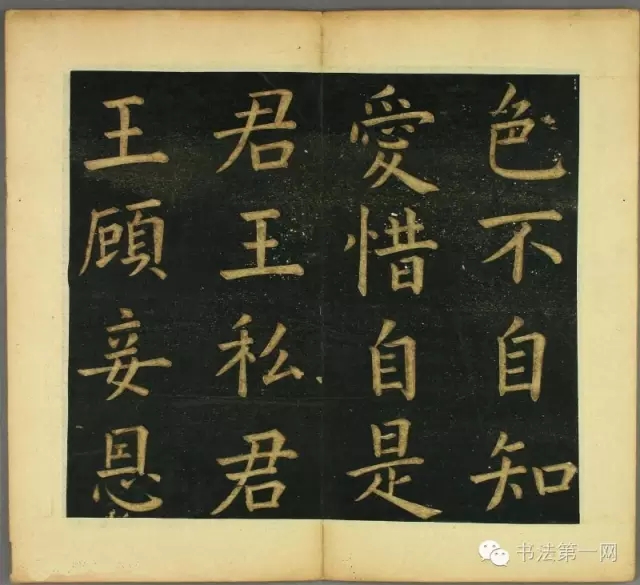 色不自知
愛惜自是
君王私君
王顧妾恩
书法第一网